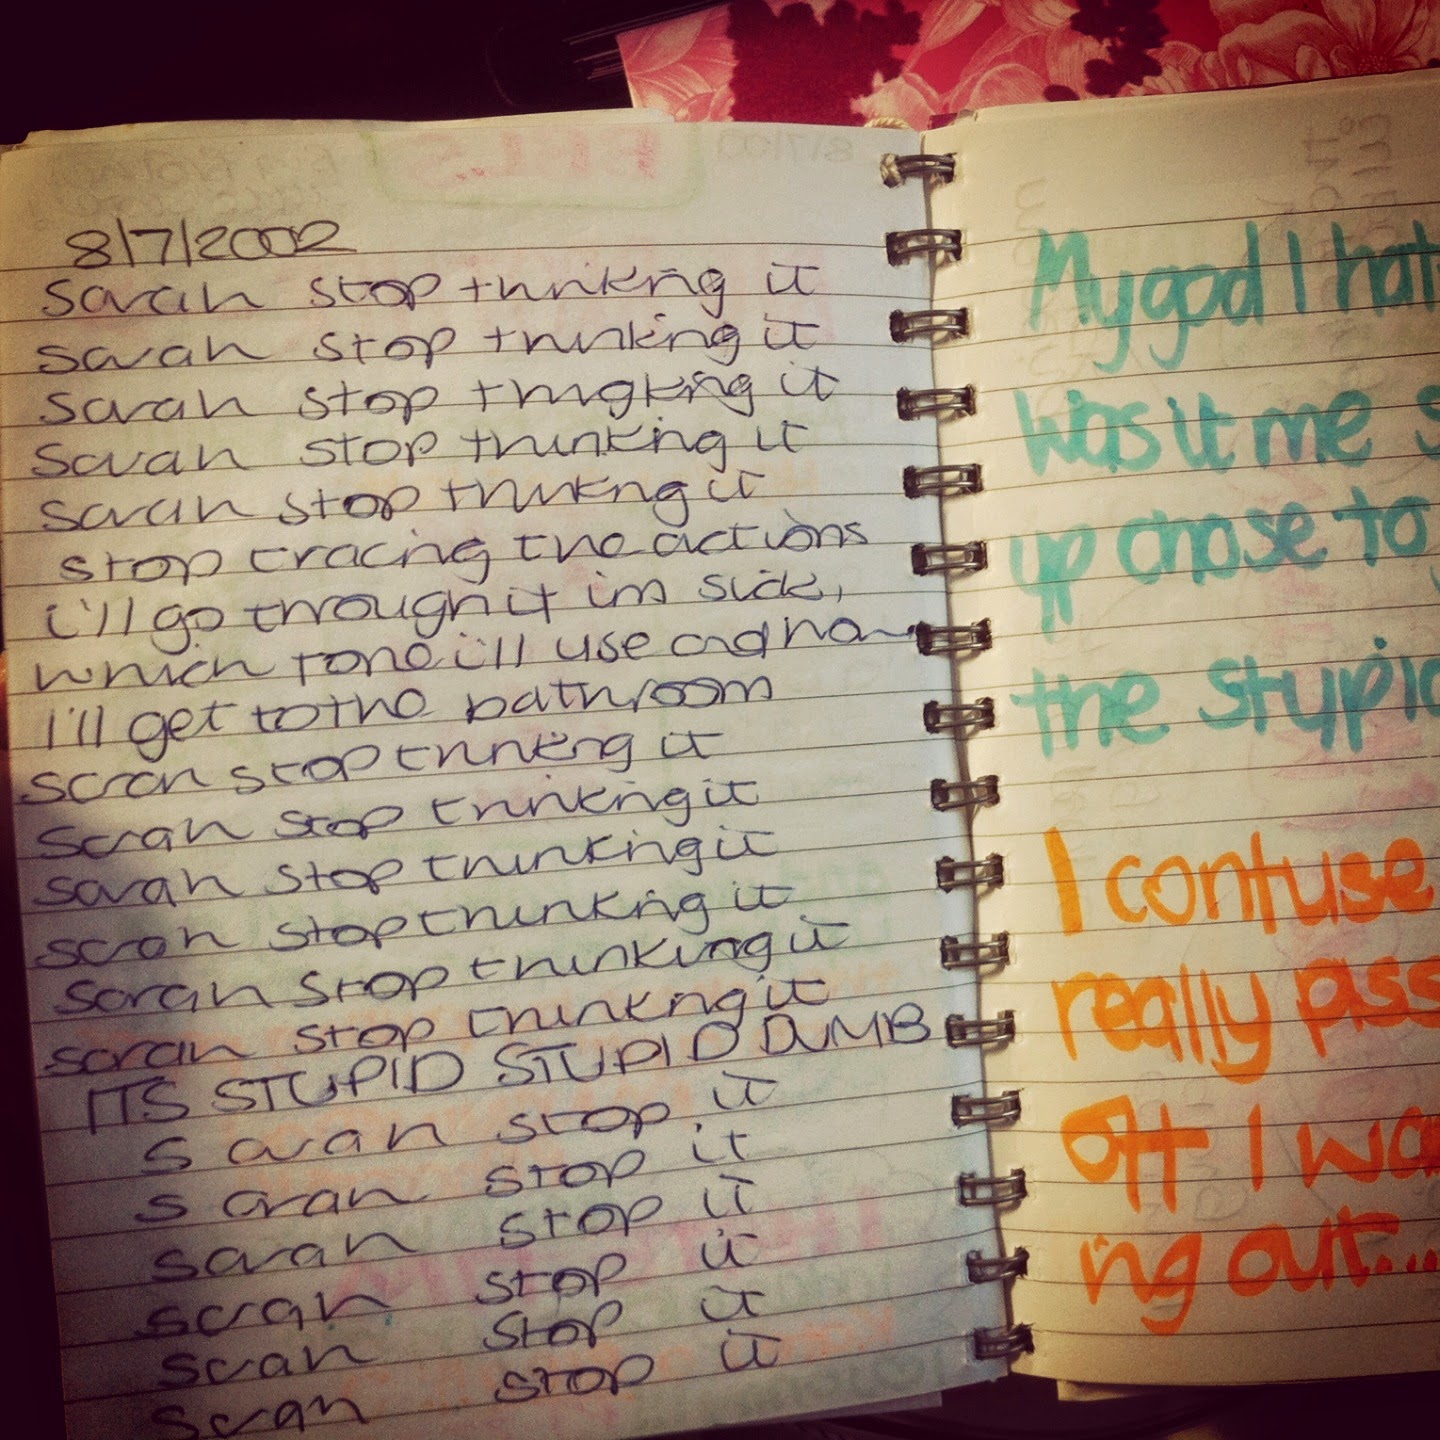 8/7/2002
Sarah stop thinking it
sarah stop thinking it
sarah stop thingking it
Sarah stop thinking it
sarah stop thinking it
stop tracing the actions
i'll go through it im sick,
which i'll use and how
I'll get to the bathroom
sarah stop thinking it
sarah stop thinking it
sarah stop thinking it
sarah stop thinking it
sarah stop thinking it
sarah stop thinking it
ITS STUPID STUPID DUMB
sarah stop it
sarah stop it
sarah stop it
sarah stop it
sarah stop it
sarah stop it
My god I hat
was it me s
up chose to
the stupid
I confuse
really piss
off I wa
ing out...